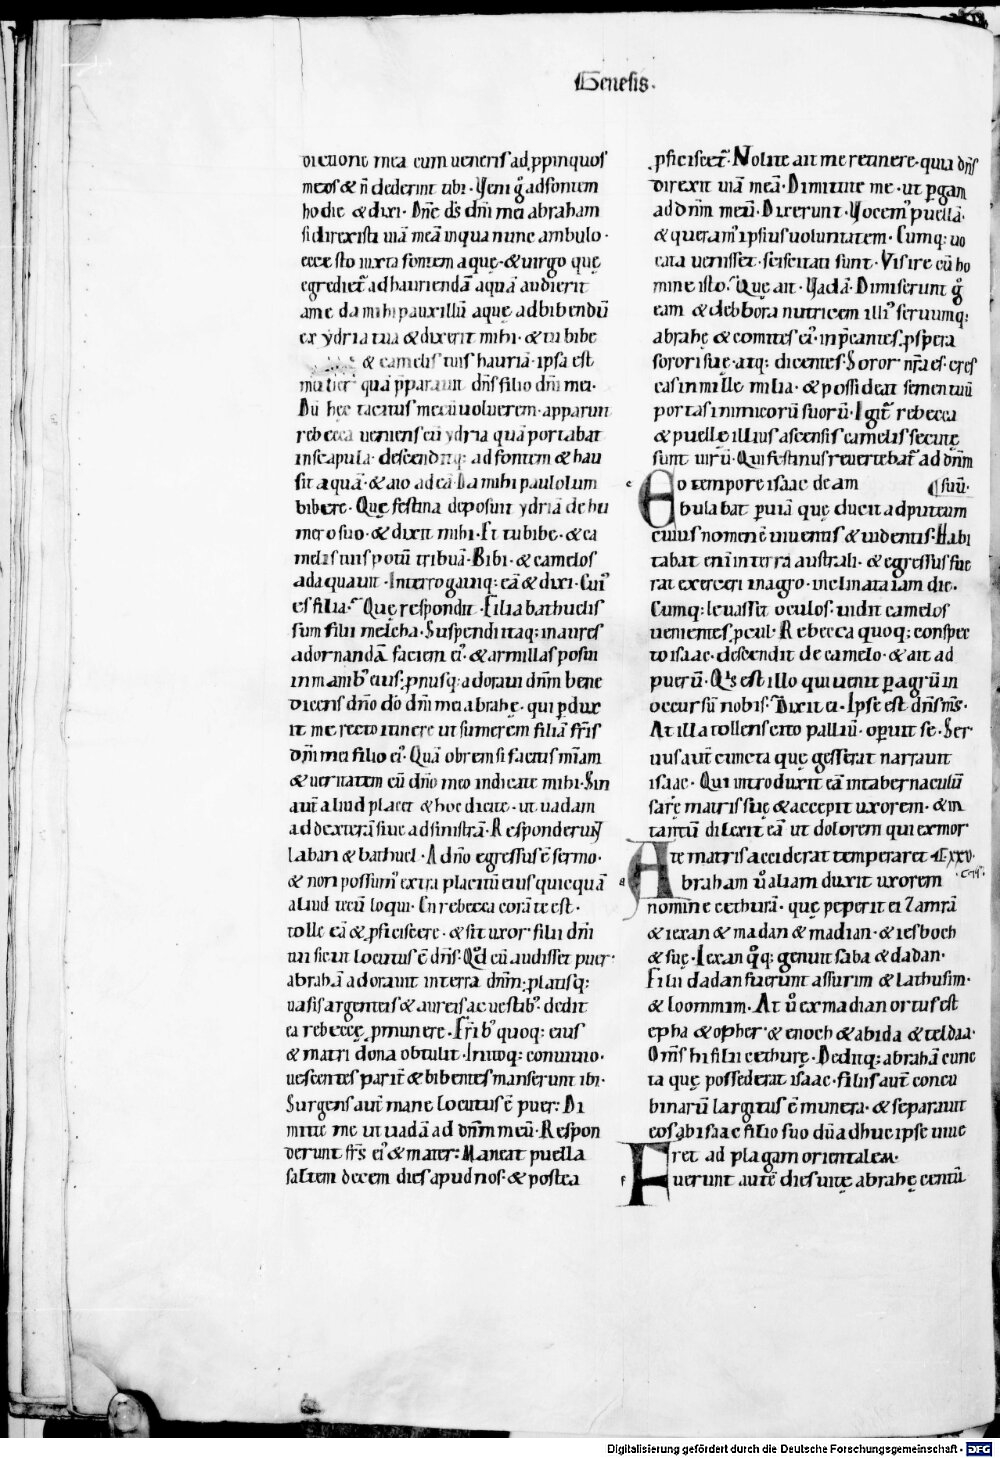 Genesis.
dictione mea cum veneris ad ꝓpinquos
meos & n̄ dederint tibi. Veni g̊ ad fontem
hodie & dixi. Dn̄e d̄s dn̄i mei abraham
si direxisti uiā meā in qua nunc ambulo.
ecce sto iuxta fontem aquę. & uirgo quę
egrediet᷑ ad hauriendā aquā audierit
a me da mihi pauxillū aquę ad bibendū
ex ydria tua & dixerit mihi. & tu bibe
& camelis tuis hauriā. ipsa est
mulier quā p̄parauit dn̄s filio dn̄i mei.
Dū hęc tacitus mecū uoluerem. apparuit
rebecca ueniens cū ydria quā portabat
in scapula. descenditq; ad fontem & hau
sit aquā. & aio ad eā. Da mihi paululum
bibere. Quę festina deposuit ydriā de hu
mero suo. & dixit mihi. Et tu bibe. & ca
melis tuis potū tribuā. Bibi. & camelos
adaquauit. Interrogauiq; eā & dixi. Cui᾽
es filia. Quę respondit. Filia bathuelis
sum filii melcha. Suspendi itaq; inaures
ad ornandā faciem ei᾽. & armillas posui
in manib᾽ eius. pnusq; adoraui dn̄m bene
dicens dn̄o dō dn̄i mei abrahę. qui ꝑdux
it me recto itinere ut sumerem filiā fr̄is
dn̄i mei filio ei᾽. Quā obrem si facitis mīam
& ueritatem cū dn̄o meo indicate mihi. Sin
aut̄ aliud placet & hoc dicite. ut uadam
ad dexterā siue ad sinistrā. Responderunt
laban & bathuel. A dn̄o egressus ē sermo.
& non possum᾽ extra placitū eius quicquā
aliud tecū loqui. En rebecca corā te est.
tolle eā & ꝓficiscere. & sit uxor filii dn̄i
tui sicut locutus ē dn̄s. Qd̄ cū audisset puer.
abrahā adorauit in terra dn̄m. platisq;
uasis argenteis & aureis ac uestib᾽. dedit
ea rebeccę ꝓ munere. Fr̄ib᾽ quoq; eius
& matri dona obtulit. Initoq; conuiuio.
uescentes parit̄ & bibentes manserunt ibi.
Surgens aut̄ mane locutus ē puer. Di
mitte me ut uadā ad dn̄m meū. Respon
derunt fr̄s ei᾽ & mater. Maneat puella
saltem decem dies apud nos. & postea
ꝓficiscet᷑. Nolite ait me retinere. quia dn̄s
direxit uiā meā. Dimittite me. ut ꝑgam
ad dn̄m meū. Dixerunt. Vocem᾽ puellā.
& queram᾽ ipsius uoluntatem. Cumq; uo
cata uenisset. sciscitati sunt. Vis ire cū ho
mine isto. Quę ait. Vadā. Dimiserunt g̊
eam & debbora nutricem illi᾽ seruumq;
abrahę & comites ei᾽. inp̄cantes ꝓspera
sorori suę. atq; dicentes. Soror nr̄a es. cres
cas in mille milia. & possideat semen tuū
portas inimicorū suorū. Igit᷑ rebecca
& puellę illius ascensis camelis secutę
sunt uirū. Qui festinus reuertebat᷑ ad dn̄m
Eo tempore isaac deam suū.
bulabat ꝑ uiā quę ducit ad puteum
cuius nomen ē uiuentis & uidentis. Habi
tabat eni in terra australi. & egressus fue
rat exerceri in agro. inclinata iam die.
Cumq; leuasset oculos. uidit camelos
uenientes ꝓcul. Rebecca quoq; conspec
to isaac. descendit de camelo. & ait ad
puerū. Qis est ille qui uenit ꝑ agrū in
occursū nobis. Dixit ei. Ipse est dn̄s ms̄.
At illa tollens cito palliū. oꝑuit se. Ser
uus aut̄ cuncta quę gesserat narrauit
isaac. Qui introduxit eā in tabernaculū
sarę matris suę & accepit uxorem. & in
tantū dilexit eā ut dolorem qui ex mor
te matris acciderat temperaret. XXV.
Abraham ů aliam duxit uxorem
nomine cethurā. quę peperit ei Zamrā
& iexan & madan & madian. & iesboch
& suę. Iexan q̊q; genuit saba & dadan.
Filii dadan fuerunt assurim & lathusim.
& loommim. At ů ex madian ortus est
epha & opher & enoch & abida & teldaa.
Oms̄ hi filii cethurę. Deditq; abrahā cunc
ta quę possederat isaac. filiis aut̄ concu
binarū largitus ē munera. & separauit
eos ab isaac filio suo dū adhuc ipse uiue
ret ad plagam orientalem.
Fuerunt autē dies uitę abrahę centū
Digitalisierung gefördert durch die Deutsche Forschungsgemeinschaft - DFG